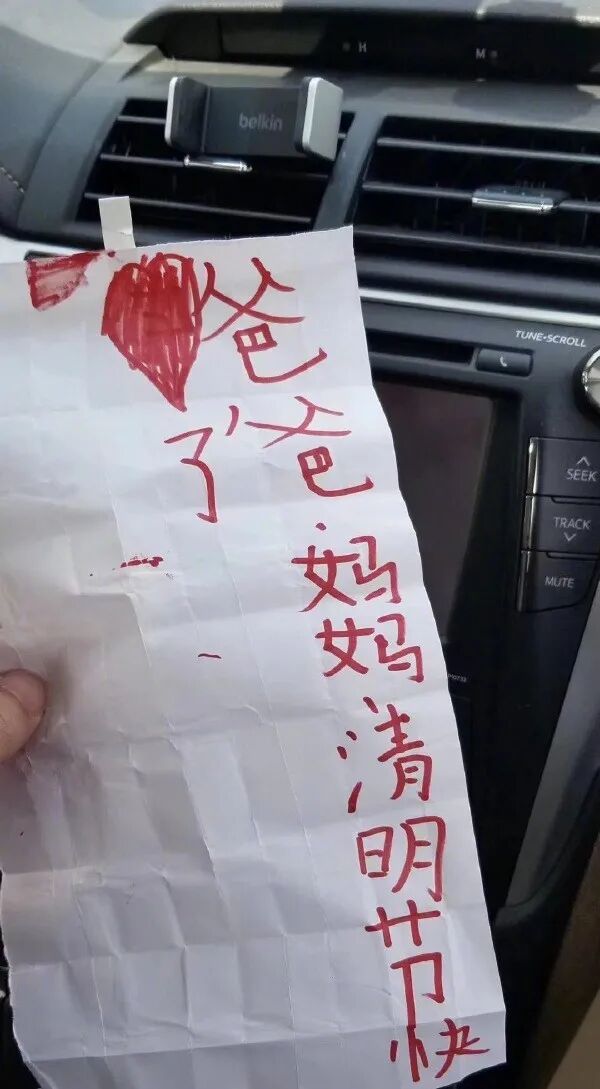 H
M
belkin
TUNE•SCROLL
SEEK
TRACK
MUTE
爸爸.妈妈清明节快
了